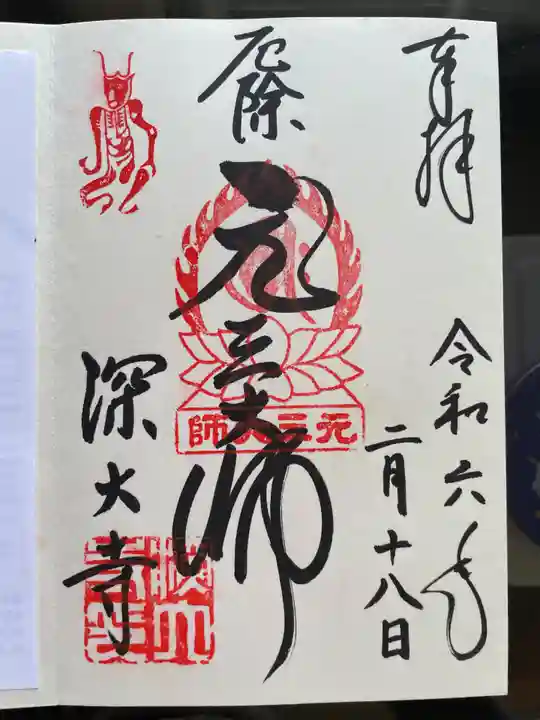 奉拝
令和六年
二月十八日
厄除
元三大師
師大三元
深大寺